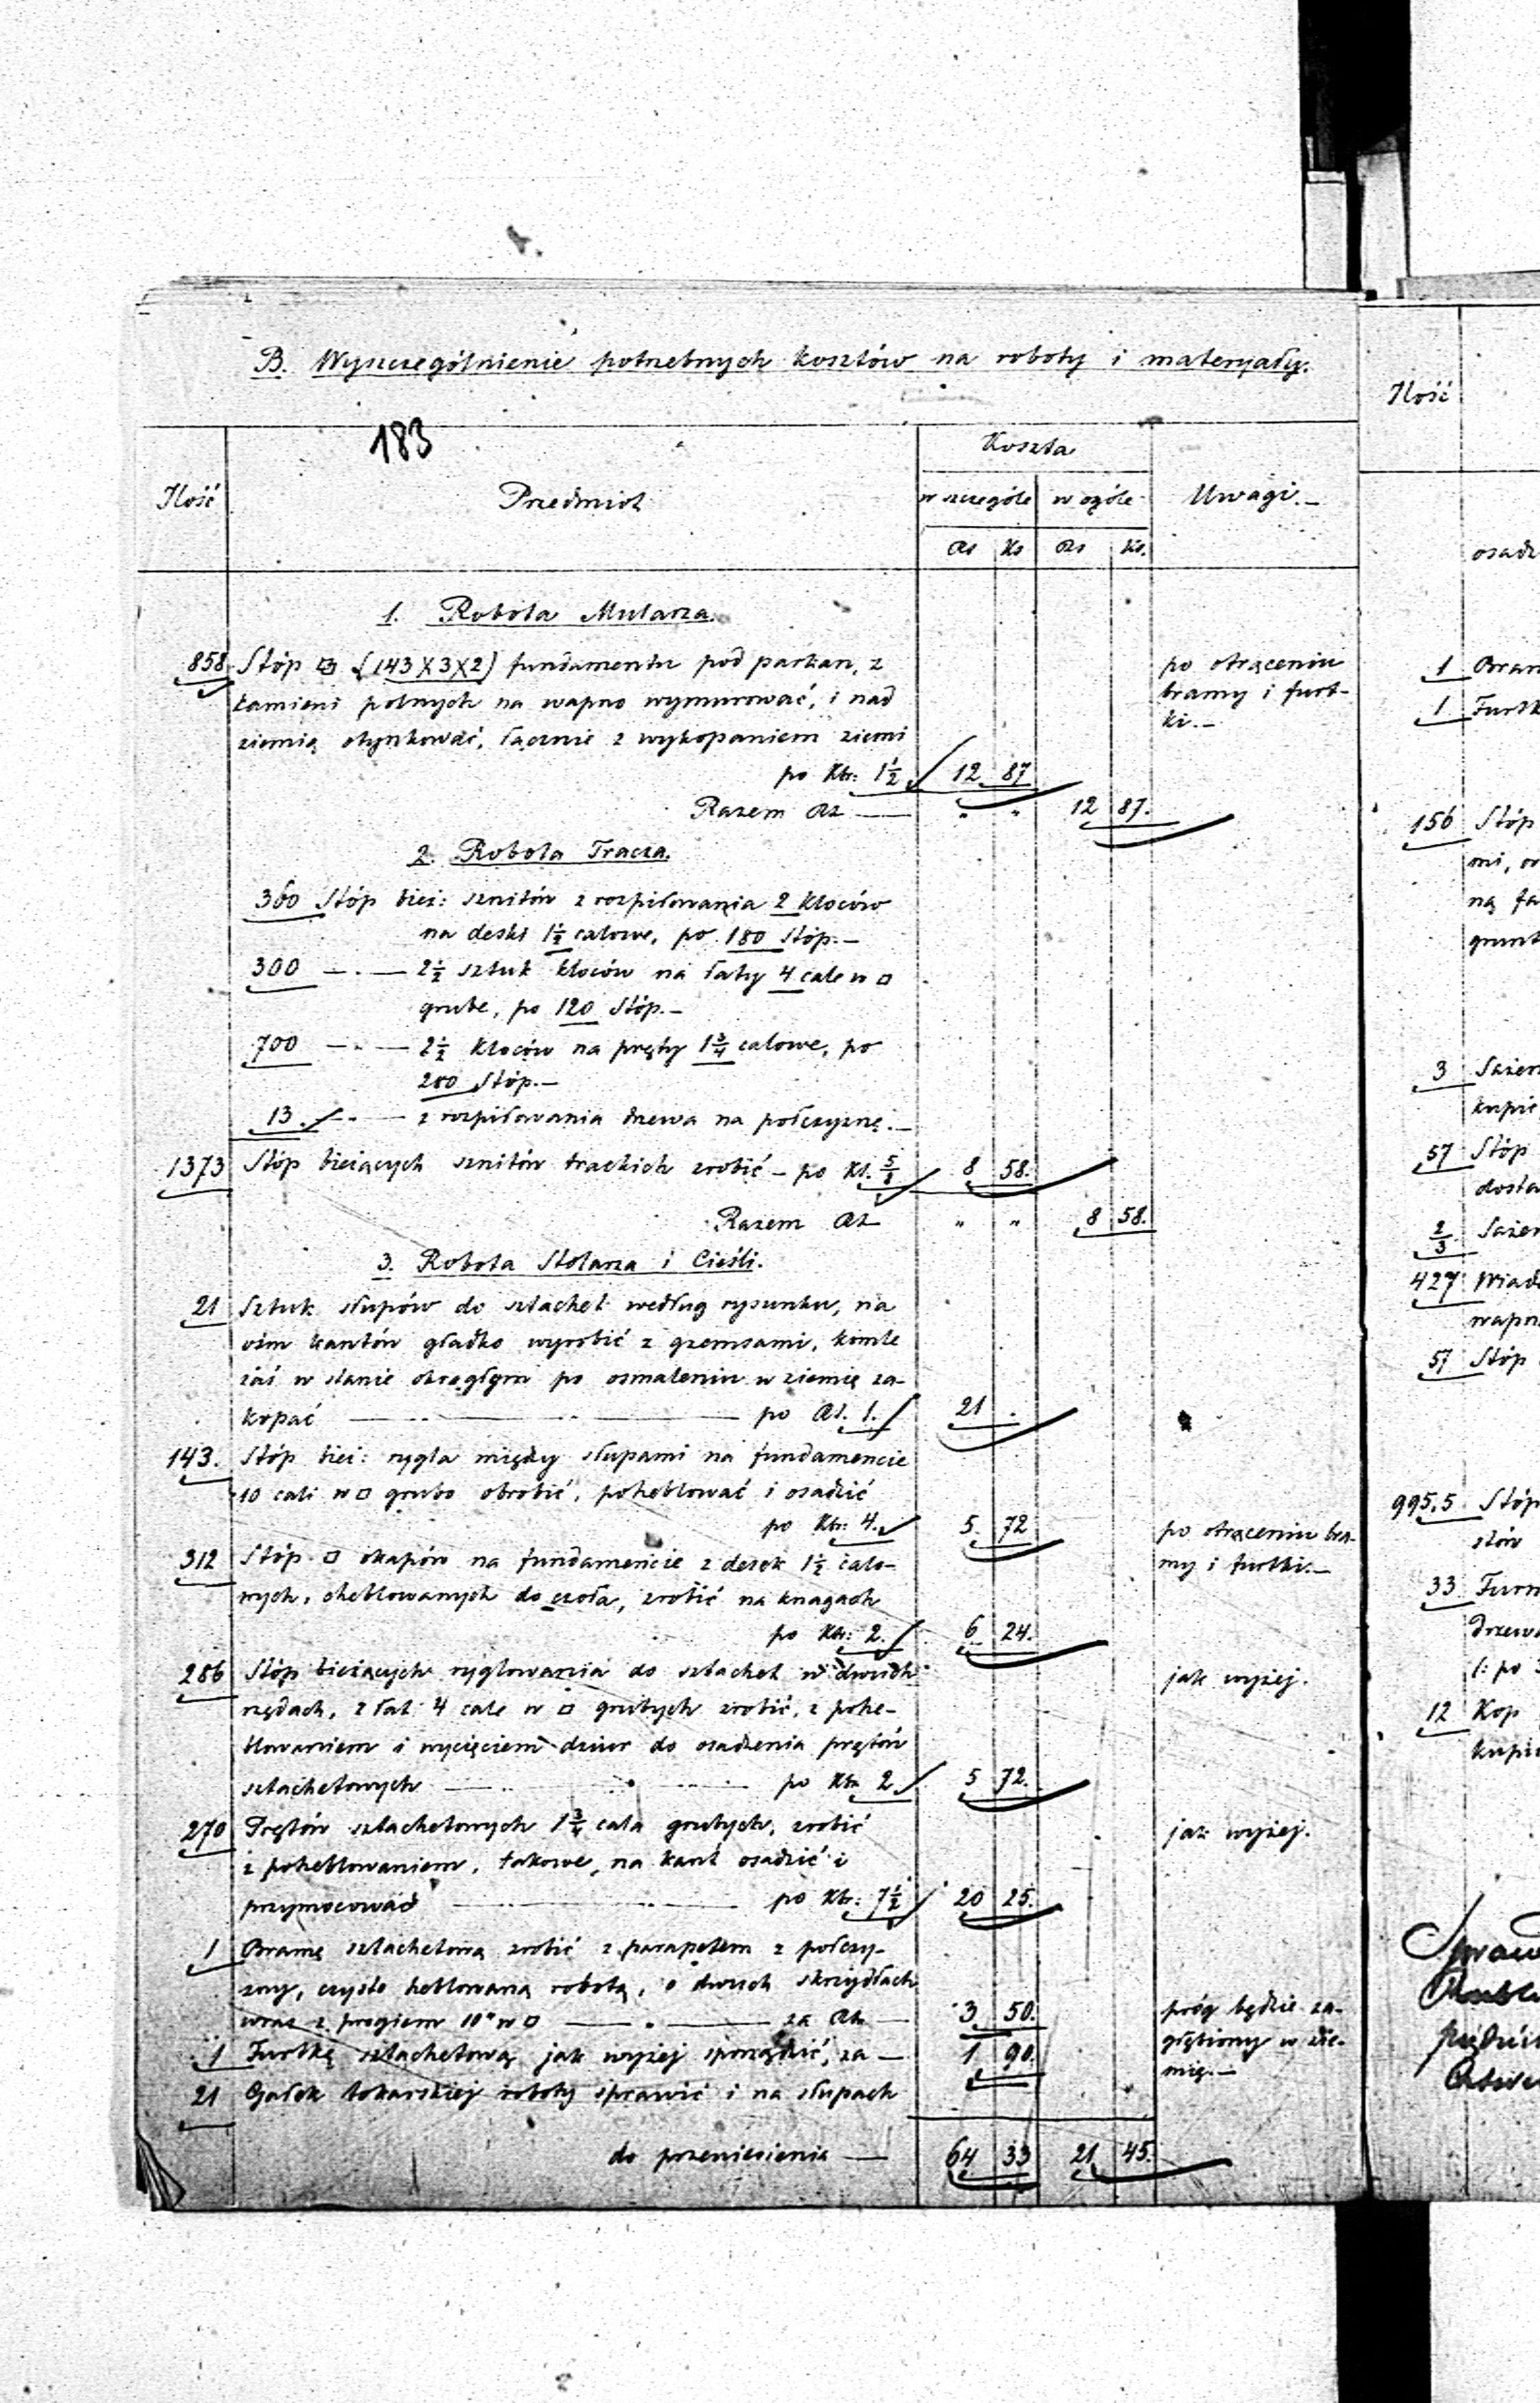 B. Wyszczególnienie potrzebnych kosztów na roboty i materyały.
183
Ilość
Przedmiot
Koszta
w szczególe
w ogóle
Uwagi.—
Rs
Ks
Rs
Ks.
1. Robota Mularza.
858 Stóp (143X3X2) fundamentu pod parkan, z
kamieni polnych na wapno wymurować, i nad
ziemią otynkować, łącznie z wykopaniem ziemi
po Kbr: 1½ 12 87
po otrąceniu
bramy i furt-
ki.—
Razem Rs — " " 12 87.
2. Robota Tracza.
360 Stóp bież: sznitów z rozpiłowania 2 kloców
na deski 1½ calowe, po 180 Stóp.—
300 — " — 2½ sztuk kloców na łaty 4 cale w □
grube, po 120 Stóp.—
700 — " — 2½ kloców na pręty 1¾ calowe, po
280 Stóp.—
13. — " — z rozpiłowania drzewa na połczyznę.—
1373 Stóp bieżących sznitów trackich zrobić — po Kl. 5/8 8 58.
Razem Rs " " 8 58.
3. Robota Stolarza i Cieśli.
21 Sztuk słupów do sztachet według rysunku, na
ośm kantów gładko wyrobić z gzemsami, końce
zaś w stanie okrągłym po osmaleniu w ziemię za-
kopać — " — " — po Rs. 1. 21 .
143. Stóp bież: rygla między słupami na fundamencie
10 cali w □ grubo obrobić, poheblować i osadzić
po Kbr: 4. 5. 72
po otrąceniu bra-
my i furtki.—
312 Stóp □ okapów na fundamencie z desek 1½ calo-
wych, oheblowanych do czoła, zrobić na knagach
po Kbr: 2. 6 24.
286 Stóp bieżących ryglowania do sztachet w dwóch
rzędach, z łat 4 cale w □ grubych zrobić, z pohe-
blowaniem i wycięciem dziur do osadzenia prętów
sztachetowych — " — po Kbr. 2. 5 72.
jak wyżej.
270 Prętów sztachetowych 1¾ cala grubych, zrobić
z poheblowaniem, takowe, na kant osadzić i
przymocować — " — po Kbr: 7½ 20 25.
jak wyżej.
1 Bramę sztachetową zrobić z parapetem z połczy-
zny, czysto heblowaną robotą, o dwóch skrzydłach
wraz z progiem 10" w □ — " — za Rs — 3 50.
próg będzie za-
głębiony w zie-
mię.—
1 Furtkę sztachetową jak wyżej sporządzić, za — 1 90.
21 Gałek tokarskiej roboty sprawić i na słupach
do przeniesienia — 64 33 21 45.
Ilość
osadz
1 Bram
1 Furtk
156 Stóp
ną fa
grunt
3 Sążen
kupić
57 Stóp
dosta
2/3 Sążen
427 Wiad
wapn
57 Stóp
995.5 Stóp
stów
33 Furm
drzewa
12 Kop
kupi